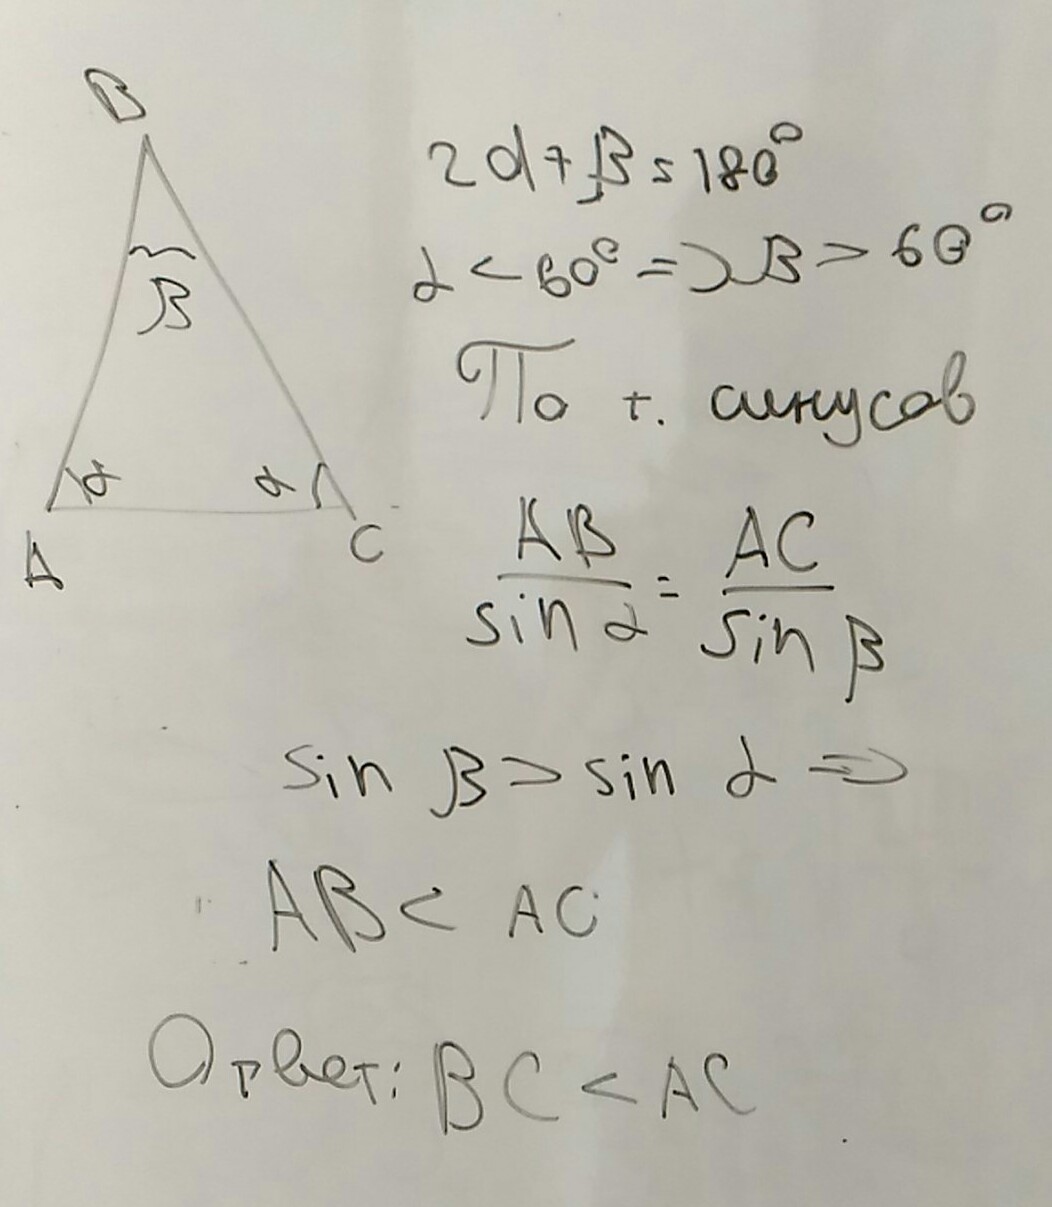 B
2α+β=180°
α<60°=>β>60°
β
По т. синусов
α α
A C
AB/sin α = AC/sin β
sin β>sin α =>
AB< AC
Ответ: BC<AC